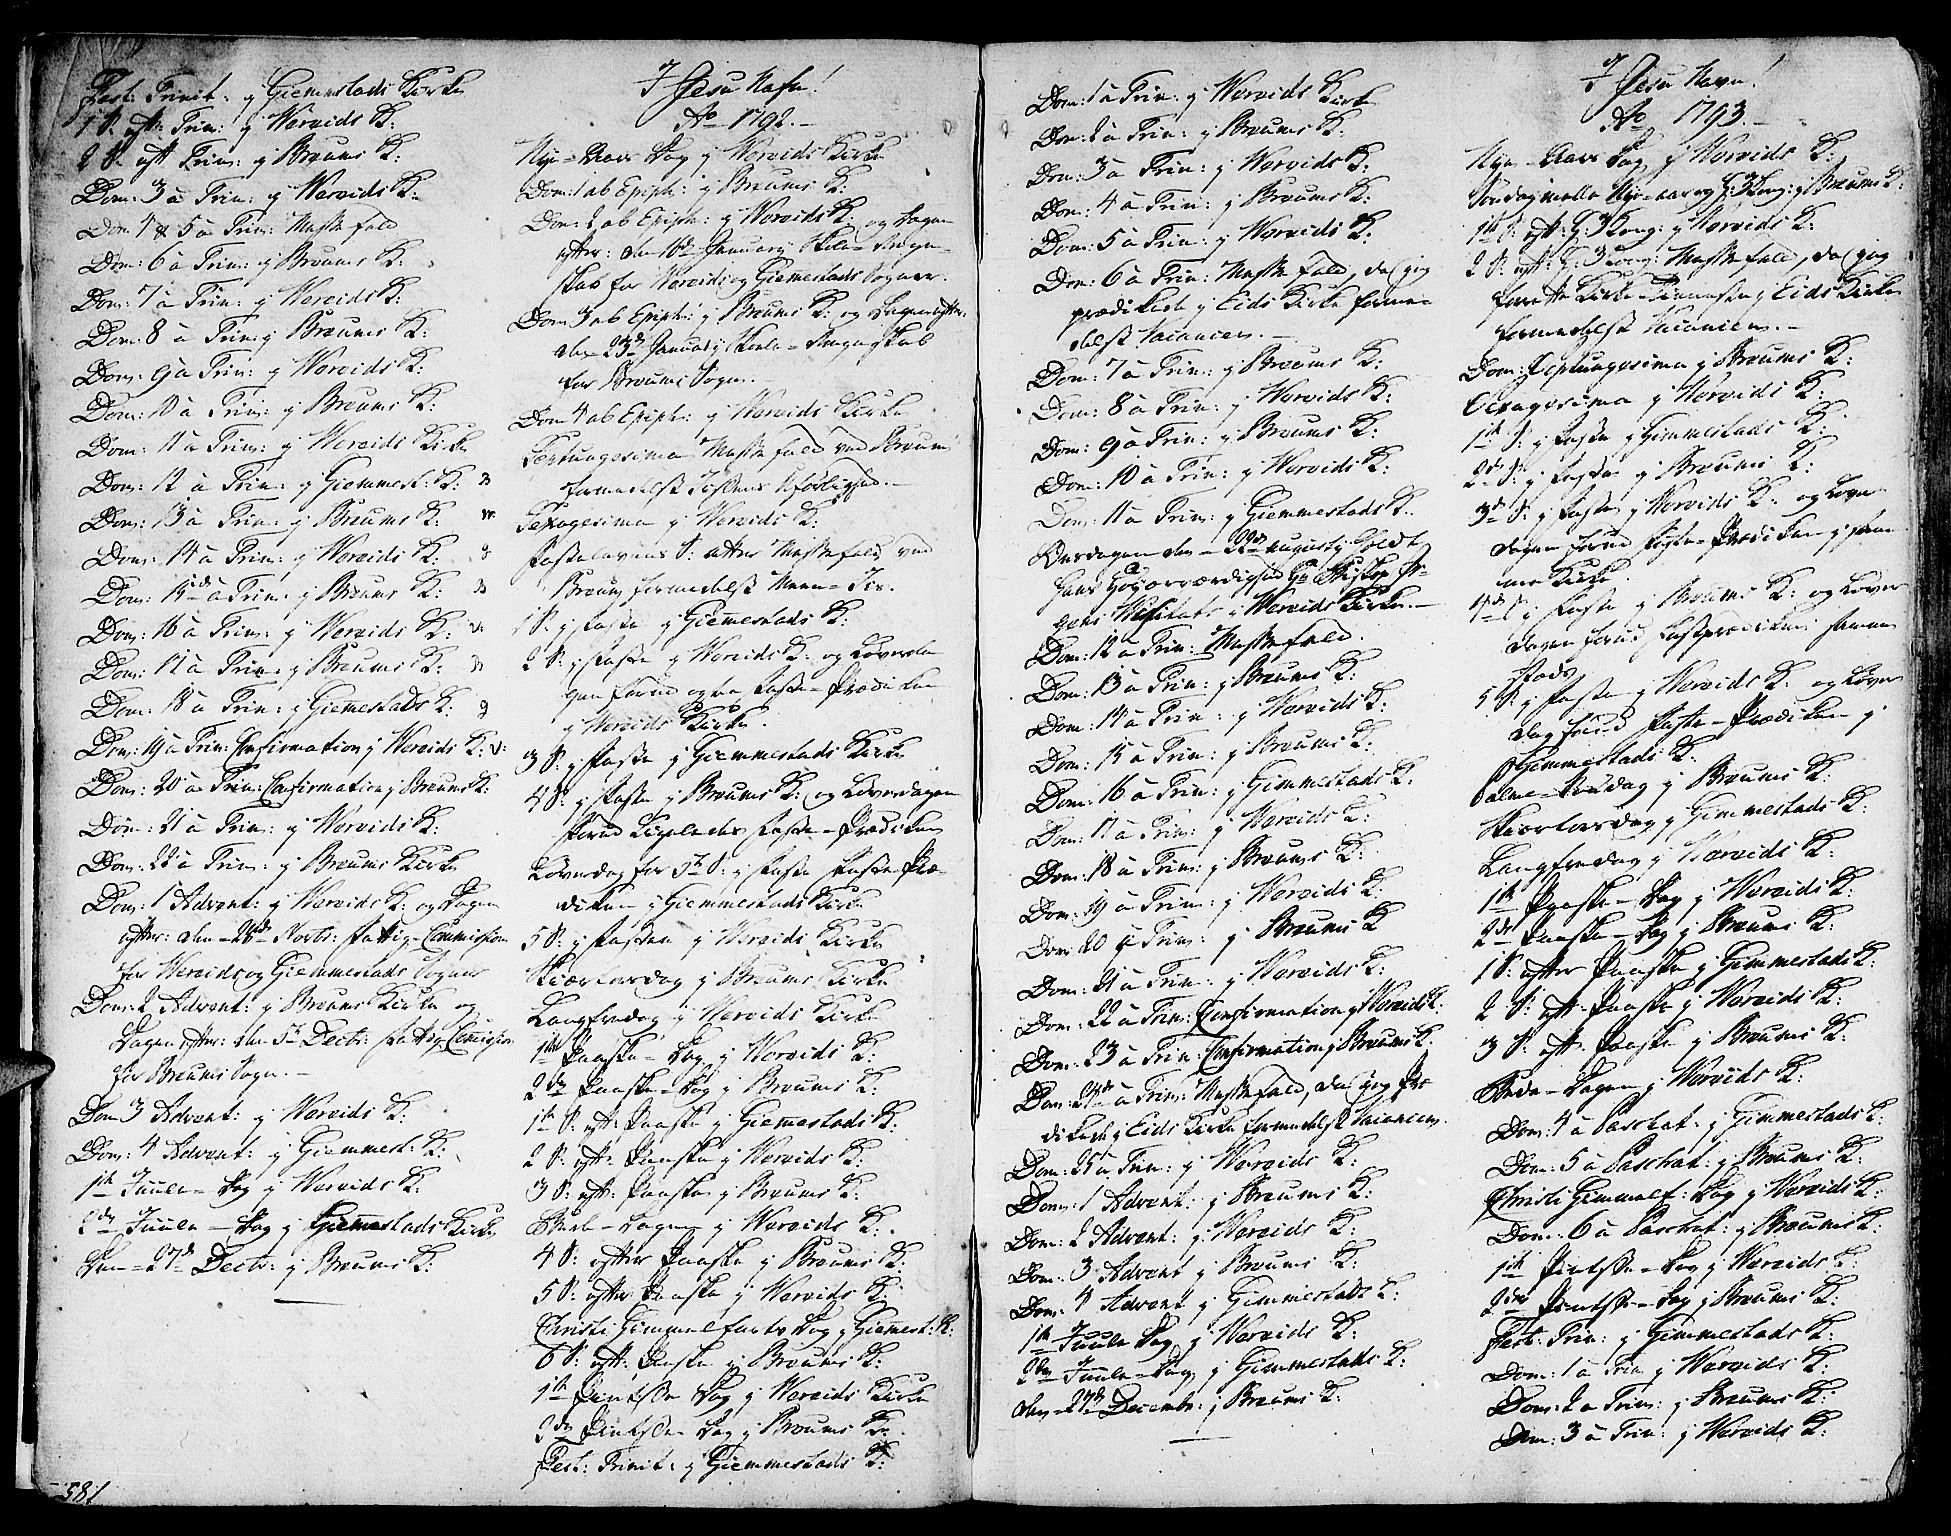 Fest: Trinit: y Giemestads Kirke
1 S: eft: Trin: y Wereids K:
2 S: eft Trin: y Breums K:
Dom: 3 à Trin: y Wereids K:
Dom 4 & 5 à Trin: Messefald
Dom: 6 à Trin: y Breums K:
Dom: 7 à Trin: y Wereids K:
Dom: 8 à Trin: y Breums K:
Dom: 9 à Trin: y Wereids K:
Dom: 10 à Trin: y Breums K:
Dom: 11 à Trin: y Wereids Kirke
Dom: 12 à Trin: y Giemmest: K:
Dom: 13 à Trin: y Breums K:
Dom: 14 à Trin: y Wereids K:
Dom: 15 à Trin: y Breums K:
Dom: 16 à Trin: y Wereids K:
Dom: 17 à Trin: y Breums K:
Dom: 18 à Trin: y Giemestads K:
Dom: 19 à Trin: Confirmation y Wereids K:
Dom: 20 à Trin: Confirmation y Breums K:
Dom: 21 à Trin: y Wereids K:
Dom: 22 à Trin: y Breums Kirke
Dom: 1 Advent: y Wereids K: og Dagen
efter: den 28de Novbr: Fattig-Commission
for Wereids og Giemmestads Sogner
Dom: 2 Advent: y Breums Kirke og
Dagen efter: den 5te Decbr: Fattig-Commission
for Breums Sogn.
Dom 3 Advent: y Wereids K:
Dom: 4 Advent: y Giemmest: K:
1te Juule-Dag y Wereids K:
2den Juule-Dag y Giemestads Kirke
Den 27de Decbr: y Breums K:
581
J Jesu Nafn!
Ao 1792.
Nye-Aars Dag y Wereids Kirke
Dom: 1 ab Epiph: y Breums K:
Dom: 2 ab Epiph: y Wereids K: og Dagen
efter: den 16de January Skole-
skab for Wereids og Giemestads Sogner.
Dom: 3 ab Epiph: y Breums K: og Dagen efter:
den 23de January Skole-
for Breums Sogn.
Dom: 4 ab Epiph: y Wereids Kirke
Septuagesima Messefald ved Breum
formedelst
Sexagesima y Wereids K:
Fastelavens S: atter Messefald ved
Breum formedelst
1 S: y Faste y Giemestads K:
2 S: y Faste y Wereids K: og Løverda
gen forud Faste-Prædiken
y Wereids Kirke.
3 S: y Faste y Giemmestads Kirke
4 S: y Faste y Breums K: og Løverdagen
forud Ligeledes Faste-Prædiken
Løverdag for 5te S: y Faste Faste-Præ-
diken y Giemmestads Kirke
5 S: y Fasten y Wereids Kirke
Skiærtorsdag y Breums Kirke
Langfredag y Wereids Kirke
1te Paaske-Dag y Wereids K:
2den Paaske-Dag y Breums K:
1te S: eft: Paaske y Giemestads K:
2 S: eft: Paaske y Wereids K:
3 S: eft: Paaske y Breums K:
Bede-Dagen y Wereids K:
4 S: efter Paaske y Breums K:
5 S: efter Paaske y Wereids K:
Christi Himmelfarts Dag y Giemest: K:
6 S: eft: Paaske y Breums K:
1te Pintse Dag y Wereids Kirke
2den Pintse Dag y Breums K:
Fest: Trinit: y Giemmestads K:
Dom: 1 à Trin: y Wereids Kirke
Dom: 2 à Trin: y Breums K:
Dom: 3 à Trin: y Wereids K:
Dom: 4 à Trin: y Breums K:
Dom: 5 à Trin: y Wereids K:
Dom: 6 à Trin: Messefald, da jeg
prædikede y Eids Kirke forme-
delst Vacancen.
Dom: 7 à Trin: y Breums K:
Dom: 8 à Trin: y Wereids K:
Dom: 9 à Trin: y Breums K:
Dom: 10 à Trin: y Wereids K:
Dom: 11 à Trin: y Giemmestads K.
Onsdagen den 22de Augusty holdt
Hans Høyærværdighed Hr Biskop
Visitats i Wereids Kirke.
Dom: 12 à Trin: Messefald.
Dom: 13 à Trin: y Breums K:
Dom: 14 à Trin: y Wereids K:
Dom: 15 à Trin: y Breums K:
Dom: 16 à Trin: y Giemmestads K:
Dom: 17 à Trin: y Wereids K:
Dom: 18 à Trin: y Breums K:
Dom: 19 à Trin: y Wereids K:
Dom: 20 à Trin: y Breums K
Dom: 21 à Trin: y Wereids K:
Dom: 22 à Trin: Confirmation y Wereids K:
Dom: 23 à Trin: Confirmation y Breums K.
Dom: 24de à Trin: Messefald, da jeg Præ
dikede y Eids Kirke formedelst Vacancen.
Dom: 25 à Trin: y Wereids K:
Dom: 1 Advent: y Breums K:
Dom: 2 Advent: y Wereids K:
Dom: 3 Advent y Breums K:
Dom: 4 Advent y Gimmestads K:
1te Juule Dag y Wereids K:
2den Juule-Dag y Gimmestads K:
den 27de Decembr: y Breums K:
J Jesu Navn!
Ao 1793.
Nye-Aars Dag y Wereids K:
Søndag mellem Nye-aar og H: 3 Kong: y Breums K:
1te S: eft: H: 3 Kong: y Wereids K:
2 S: eft: H: 3 Kong: Messefald, da jeg
Kirke-Tieneste y Eids Kirke
formedelst Vacancen.
Dom: Septuagesima y Breums K:
Sexagesima y Wereids K:
1te S: y Faste y Gimmestads K:
2den S: y Fasten y Breums K:
3de S: y Faste y Wereids K: og Løver
dagen forud Faste-Prædiken y sam
me Kirke.
4de S: y Faste y Breums K: og Løver
dagen forud Fasteprædiken samme
Steds
5 S: y Faste y Wereids K: og Løver
dag forud Faste-Prædiken y
Gimmestads K:
Palme-Søndag y Breums K:
Skiærtorsdag y Gimmestads K:
Langfredag y Wereids K:
1te Paaske-Dag y Wereids K:
2den Paaske-Dag y Breums K:
1 S: efter Paaske y Gimmestads K:
2 S: eft: Paaske y Wereids K:
3 S: eft: Paaske y Breums K:
Bede-Dagen y Wereids K:
Dom: 4 à Paschat: y Gimmestads K:
Dom: 5 à Paschat: y Breums K:
Christi Himmelf: Dag y Wereids K:
Dom: 6 à Paschat: y Breums K:
1te Pintse-Dag y Wereids K:
2den Pintse-Dag y Breums K:
Fest: Trin: y Gimmestads K:
Dom: 1 à Trin y Wereids K:
Dom: 2 à Trin: y Breums K:
Dom: 3 à Trin: y Wereids K: